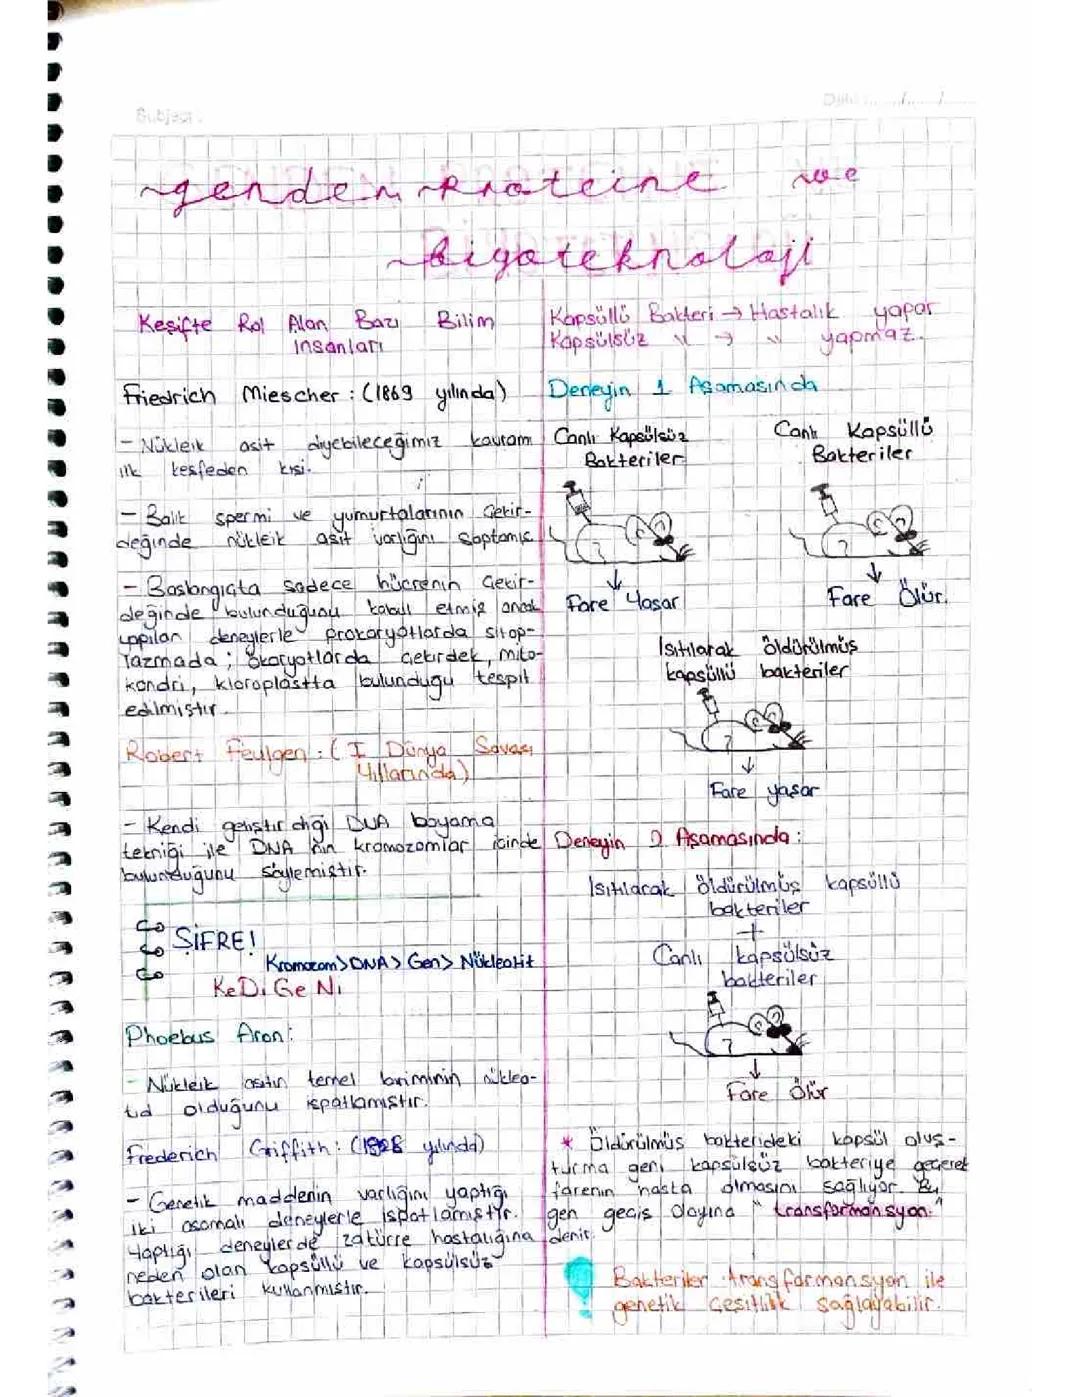 Subject:
Date ....../....../......
genden proteine ve
biyoteknoloji
Keşifte Rol Alan Bazı Bilim
İnsanları
Friedrich Miescher : (1869 yılında)
- Nükleik asit diyebileceğimiz kavramı
ilk keşfeden kişi.
- Balık spermi ve yumurtalarının çekir-
değinde nükleik asit varlığını saptamış
- Başlangıçta sadece hücrenin çekir-
değinde bulunduğunu kabul etmiş ancak
yapılan deneylerle prokaryotlarda sitop-
lazmada ; ökaryotlarda çekirdek, mito-
kondri, kloroplastta bulunduğu tespit
edilmiştir.
Robert Feulgen : ( I Dünya Savaşı
Yıllarında)
- Kendi geliştirdiği DNA boyama
tekniği ile DNA nın kromozomlar içinde
bulunduğunu söylemiştir.
ŞİFRE!
Kromozom > DNA > Gen > Nükleotit
KeDi GeNi
Phoebus Aron:
- Nükleik asitin temel biriminin nükleo-
tid olduğunu ispatlamıştır.
Frederich Griffith : (1928 yılında)
- Genetik maddenin varlığını yaptığı
iki aşamalı deneylerle ispatlamıştır.
Yaptığı deneylerde zatürre hastalığına
neden olan kapsüllü ve kapsülsüz
bakterileri kullanmıştır.
Kapsüllü Bakteri → Hastalık yapar
Kapsülsüz " → " yapmaz.
Deneyin 1. Aşamasında
Canlı Kapsülsüz
Bakteriler
Canlı Kapsüllü
Bakteriler
↓
Fare Yaşar
↓
Fare Ölür.
Isıtılarak öldürülmüş
kapsüllü bakteriler
↓
Fare yaşar
Deneyin 2 Aşamasında :
Isıtılarak öldürülmüş kapsüllü
bakteriler
+
Canlı kapsülsüz
bakteriler
↓
Fare Ölür
* Öldürülmüş bakterideki kapsül oluş-
turma geni kapsülsüz bakteriye geçerek
farenin hasta olmasını sağlıyor. Bu
gen geçiş olayına "transformansyon"
denir.
Bakteriler transformansyon ile
genetik çeşitlilik sağlayabilir.